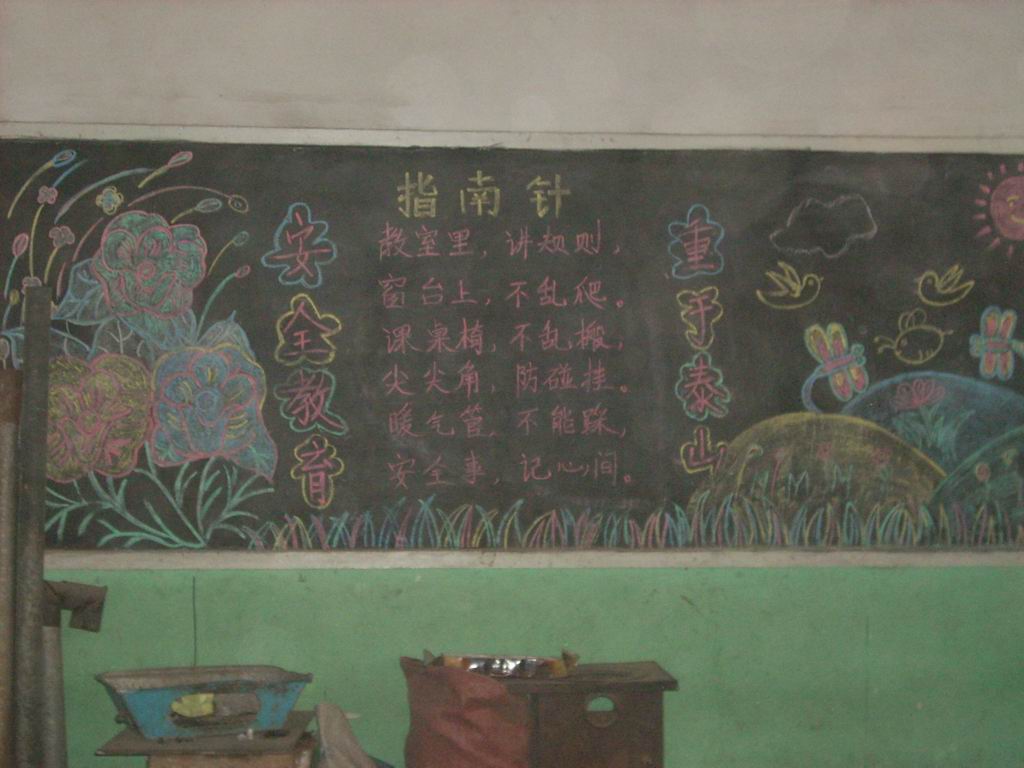 指南针
安全教育
教室里，讲规则，
窗台上，不乱爬。
课桌椅，不乱搬，
尖尖角，防碰挂。
暖气管，不能踩，
安全事，记心间。
重于泰山